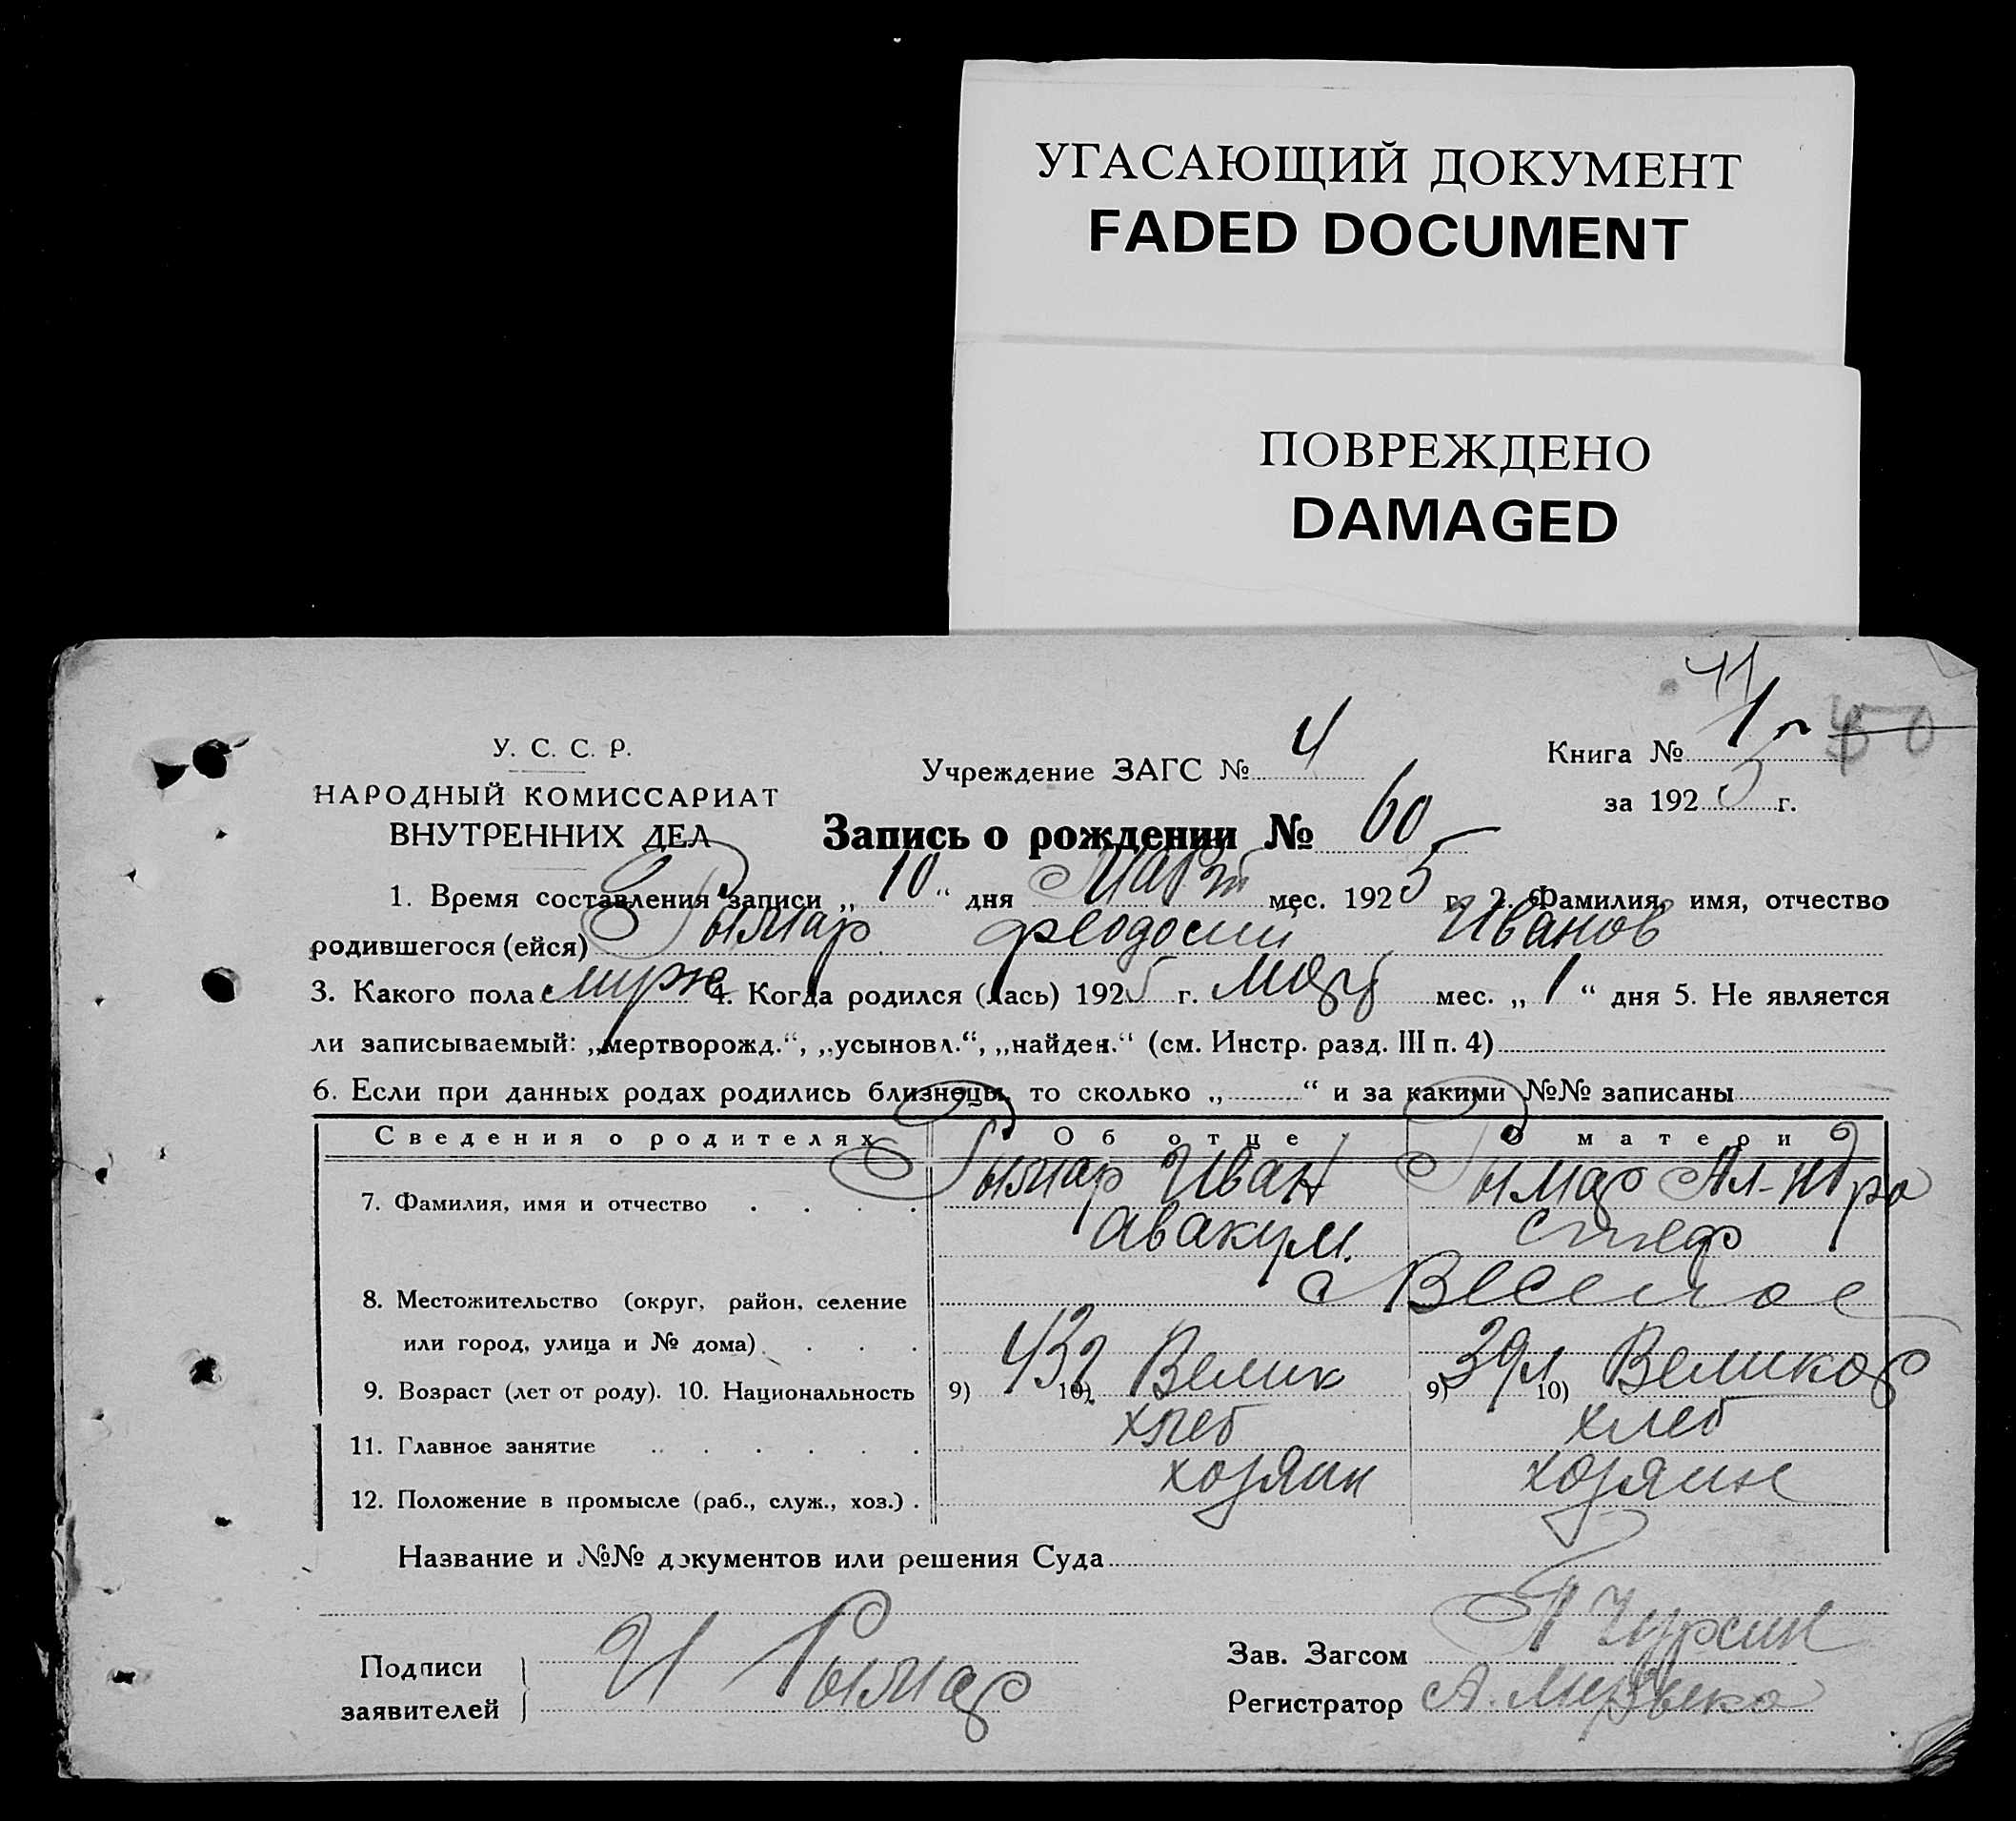 УГАСАЮЩИЙ ДОКУМЕНТ
FADED DOCUMENT
ПОВРЕЖДЕНО
DAMAGED
У. С. С. Р.
НАРОДНЫЙ КОМИССАРИАТ
ВНУТРЕННИХ ДЕЛ
Учреждение ЗАГС № 4
Книга № 1
за 1925 г.
Запись о рождении № 60
1. Время составления записи „10“ дня Март мес. 1925 г. 2. Фамилия, имя, отчество
родившегося (ейся) Рымар Феодосий Иванов
3. Какого пола муж 4. Когда родился (лась) 1925 г. март мес. „1“ дня 5. Не является
ли записываемый: „мертворожд.“, „усыновл.“, „найден.“ (см. Инстр. разд. III п. 4)
6. Если при данных родах родились близнецы, то сколько „ “ и за какими №№ записаны
Сведения о родителях Об отце О матери
7. Фамилия, имя и отчество Рымар Иван Рымар Ал-ндра
Авакум. Стеф
8. Местожительство (округ, район, селение с Веселое
или город, улица и № дома)
9. Возраст (лет от роду). 10. Национальность 9) 43 10) Велик 9) 39 л 10) Великор
11. Главное занятие хлеб хлеб
12. Положение в промысле (раб., служ., хоз.) хозяин хозяин
Название и №№ документов или решения Суда
Подписи
заявителей
И Рымар
Зав. Загсом П Чурсин
Регистратор А.